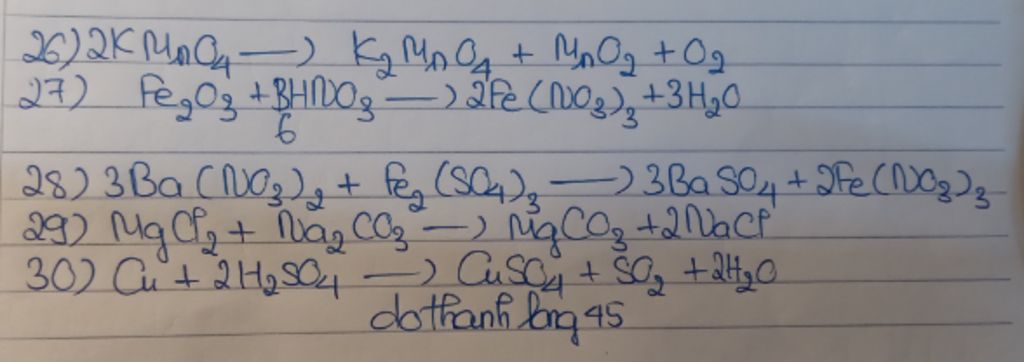 26) 2KMnO₄ → K₂MnO₄ + MnO₂ + O₂
27) Fe₂O₃ + 3HNO₃ → 2Fe(NO₃)₃ + 3H₂O
6
28) 3Ba(NO₃)₂ + Fe₂(SO₄)₃ → 3BaSO₄ + 2Fe(NO₃)₃
29) MgCl₂ + Na₂CO₃ → MgCO₃ + 2NaCl
30) Cu + 2H₂SO₄ → CuSO₄ + SO₂ + 2H₂O
dothanh long 45